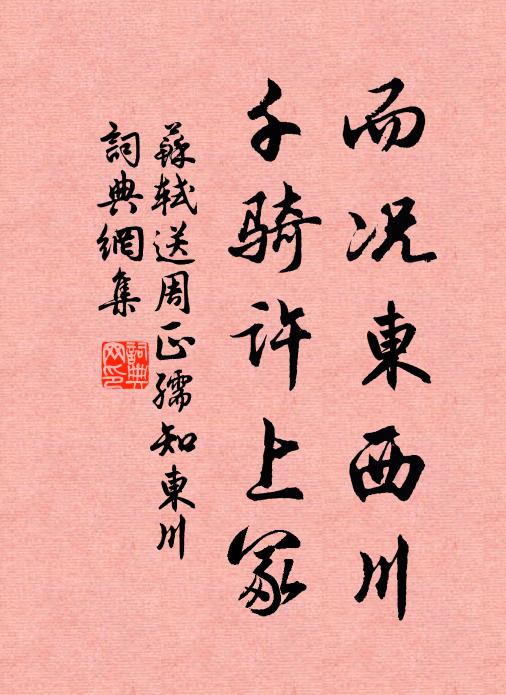 而况東西川
千骑許上冢
蘇軾送周正孺知東川
詞典網集
詞典
网印